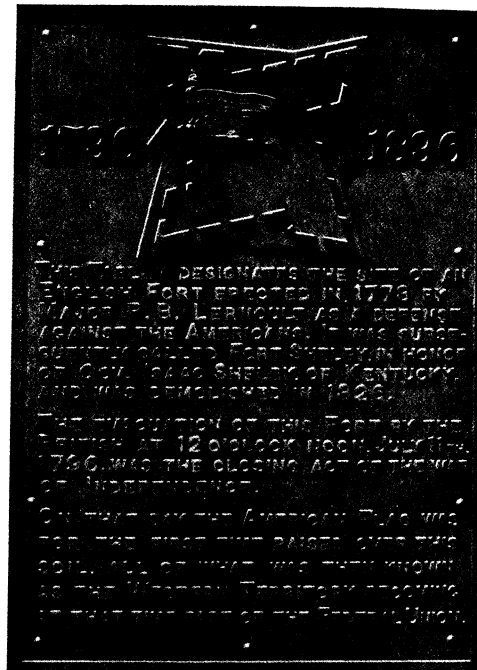 1796 1896
THIS TABLET DESIGNATES THE SITE OF AN
ENGLISH FORT ERECTED IN 1778 BY
MAJOR R. B. LERNOULT AS A DEFENSE
AGAINST THE AMERICANS. IT WAS SUBSE-
QUENTLY CALLED FORT SHELBY, IN HONOR
OF GOV. ISAAC SHELBY, OF KENTUCKY,
AND WAS DEMOLISHED IN 1826.
THE EVACUATION OF THIS FORT BY THE
BRITISH AT 12 O'CLOCK NOON, JULY 11TH
1796, WAS THE CLOSING ACT OF THE WAR
OF INDEPENDENCE.
ON THAT DAY THE AMERICAN FLAG WAS
FOR THE FIRST TIME RAISED OVER THIS
SOIL, ALL OF WHAT WAS THEN KNOWN
AS THE WESTERN TERRITORY BECOMING
AT THAT TIME PART OF THE FEDERAL UNION.